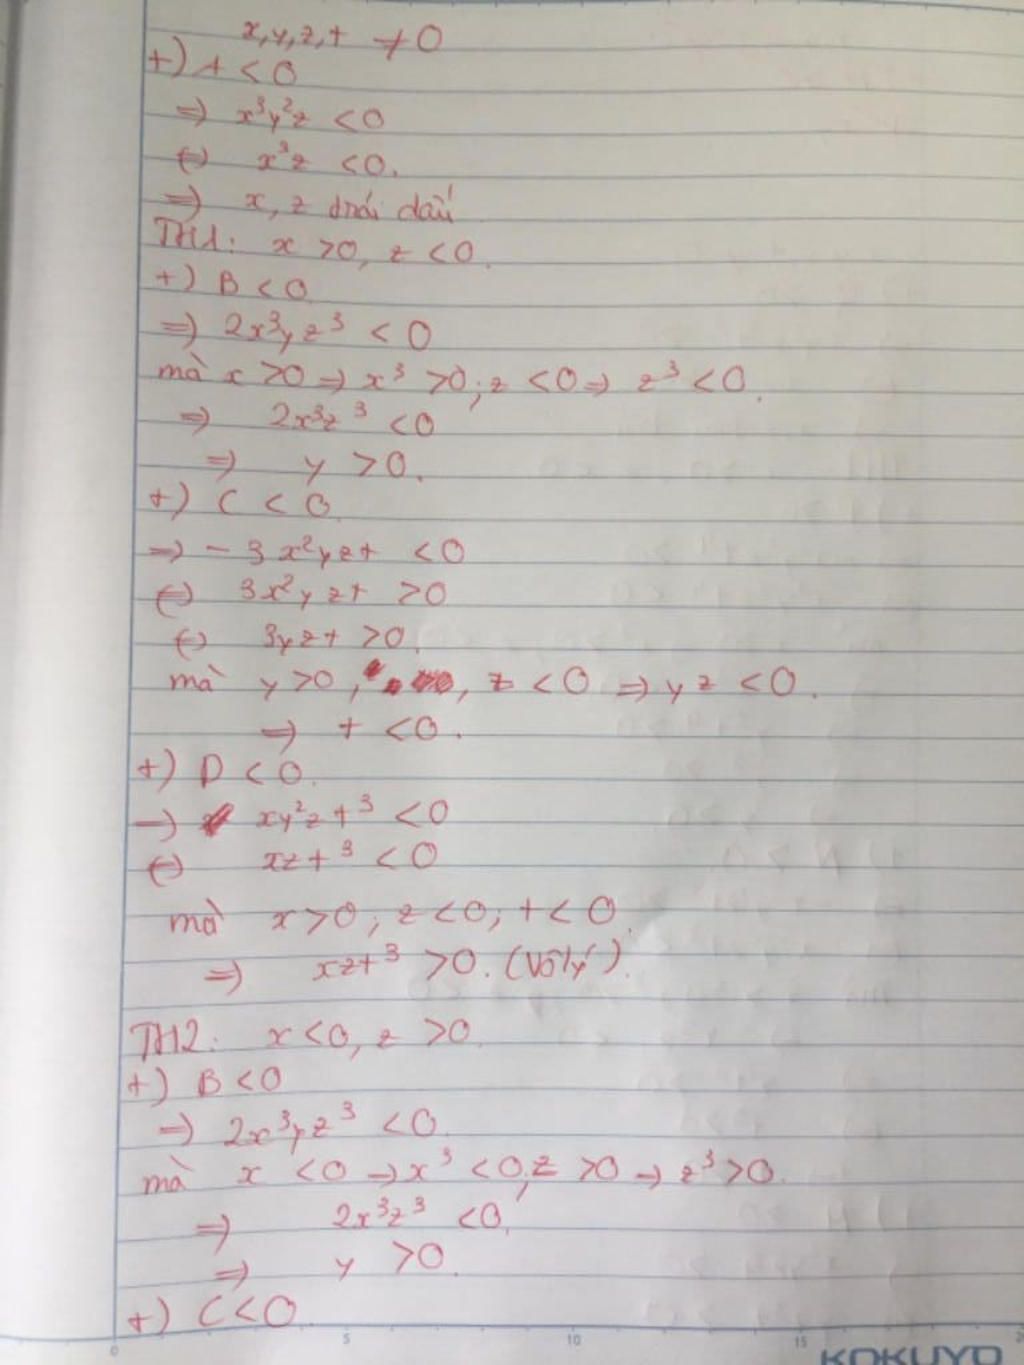 x,y,z,t ≠ 0
+) A < 0
⇒ x³y²z < 0
⇔ x³z < 0.
⇒ x, z trái dấu
TH1: x > 0, z < 0.
+) B < 0
⇒ 2x³yz³ < 0
mà x > 0 ⇒ x³ > 0; z < 0 ⇒ z³ < 0.
⇒ 2x³z³ < 0
⇒ y > 0.
+) C < 0
⇒ - 3x²yzt < 0
⇔ 3x²yzt > 0
⇔ 3yzt > 0.
mà y > 0, , z < 0 ⇒ yz < 0.
⇒ t < 0.
+) D < 0.
→ xy²zt³ < 0
⇔ xzt³ < 0
mà x > 0; z < 0; t < 0
⇒ xzt³ > 0. (Vô lý).
TH2: x < 0, z > 0.
+) B < 0
→ 2x³yz³ < 0
mà x < 0 → x³ < 0, z > 0 → z³ > 0.
⇒ 2x³z³ < 0.
⇒ y > 0.
+) C < 0
0 5 10 15 20
KOKUYO